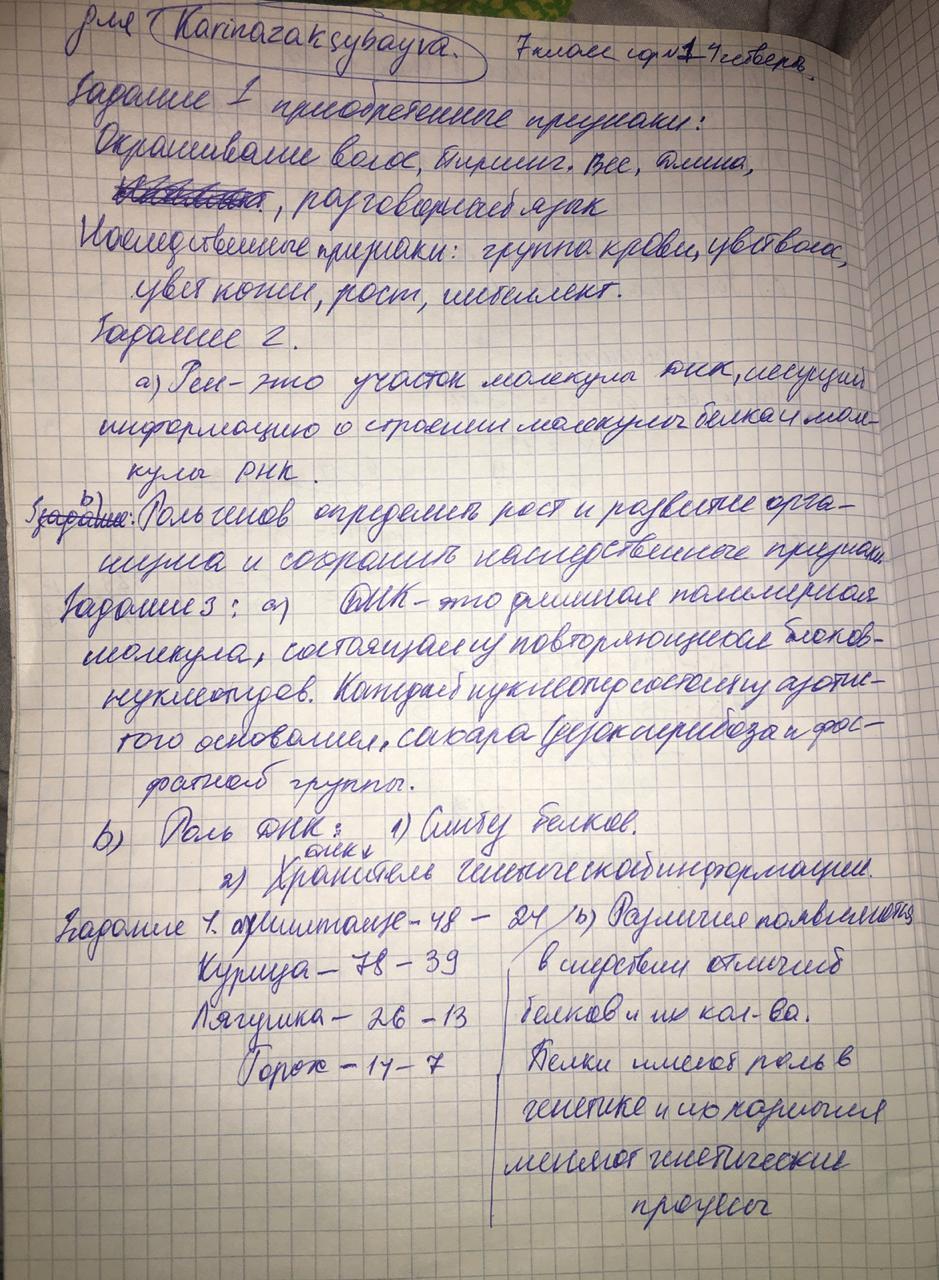 для Karinazaksybayva.
7 класс сор №1 4 четверть.
Задание 1 приобретенные признаки:
Окрашивание волос, пирсинг. Вес, длина,
, разговорный язык
Наследственные признаки: группа крови, цвет волос,
цвет кожи, рост, интеллект.
Задание 2.
а) Ген - это участок молекулы ДНК, несущий
информацию о строении молекулы белка и моле-
кулы РНК.
b) Роль генов определить рост и развитие орга-
низма и сохранить наследственные признаки.
Задание 3: а) ДНК - это длинная полимерная
молекула, состоящая из повторяющихся блоков-
нуклеотидов. Каждый нуклеотид состоит из азотис-
того основания, сахара (дезоксирибоза и фос-
фатной группы.
b) Роль ДНК: 1) Синтез белков.
2) Хранитель генетической информации.
Задание 4. а) Шимпанзе - 48 - 24
Курица - 78 - 39
Лягушка - 26 - 13
Горох - 14 - 7
b) Различия появляются
в следствии отличий
белков и их кол-ва.
Белки имеют роль в
генетике и их различия
меняют генетические
процессы